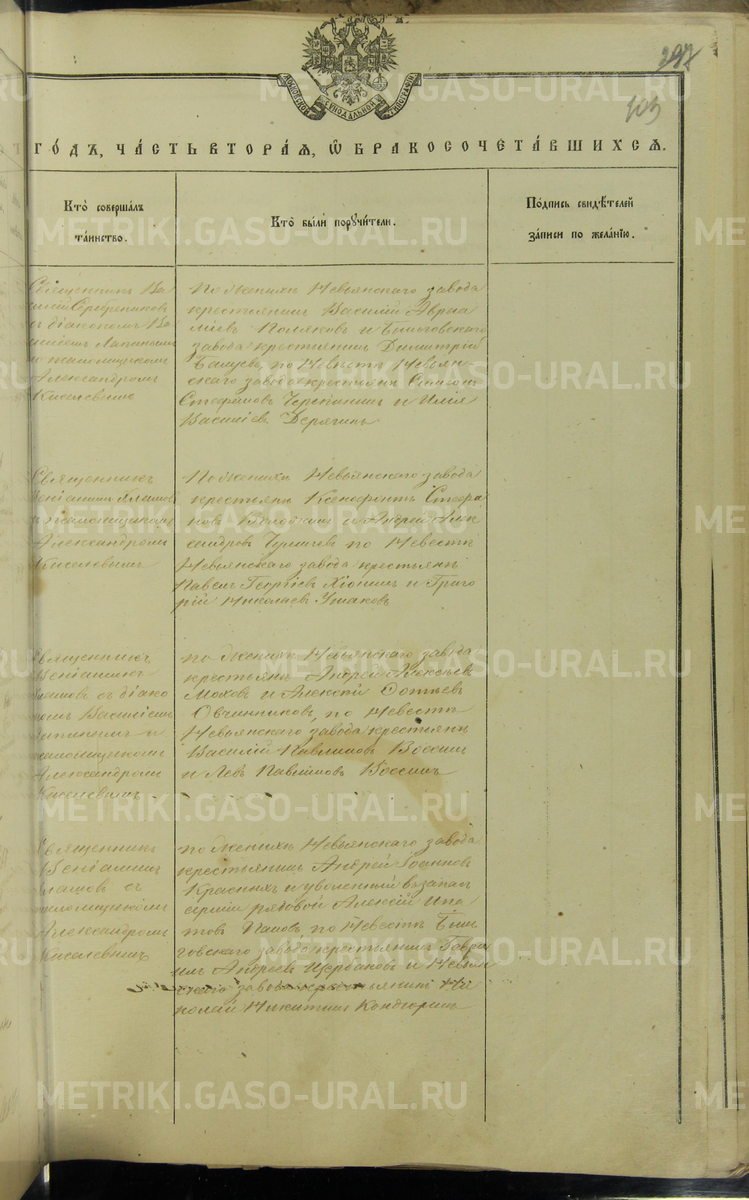 297
103
МОСКОВСКОЙ СѴНОДАЛЬНОЙ ТИПОГРАФІИ
ГОДЪ, ЧАСТЬ ВТОРАЯ, Ѡ БРАКОСОЧЕТАВШИХСЯ.
Кто совершалъ таинство.
Кто были поручители.
Подпись свидѣтелей записи по желанію.
Священникъ Ва
силій Серебренников
и діакономъ Ва
силіемъ Лапинымъ
и псаломщикомъ
Александромъ
Киселевымъ
По женихѣ Невьянскаго завода
крестьянинъ Василій Авраа
міевъ Поляковъ и Быньговскаго
завода крестьянинъ Димитрій
по Невѣстѣ Невьян
скаго завода крестьяне
Стефановъ Черепанинъ и Илія
Василіевъ Дерягинъ
Священникъ
Веніаминъ
псаломщикомъ
Александромъ
Киселевымъ
По женихѣ Невьянскаго завода
крестьяне Ксенофонтъ Стефа
новъ и Андрей Алек
сандровъ по Невѣстѣ
Невьянскаго завода крестьяне
Павелъ Георгіевъ и Григо
рій Николаевъ Ушаковъ
Священникъ
Веніаминъ
съ діако
номъ Василіемъ
Лапинымъ и
псаломщикомъ
Александромъ
Киселевымъ
по женихѣ Невьянскаго завода
крестьяне Андрей Алексѣевъ
Моховъ и Алексій Фотіевъ
Овчинниковъ, по Невѣстѣ
Невьянскаго завода крестьяне
Василій Павлиновъ
и Левъ Павлиновъ
Священникъ
Веніаминъ
съ
псаломщикомъ
Александромъ
Киселевымъ
по женихѣ Невьянскаго завода
крестьянинъ Андрей Іоанновъ
Красныхъ и уволенный въ запасъ
арміи рядовой Алексій Ипа
товъ Пановъ, по Невѣстѣ Бын
говскаго завода крестьянинъ Гаврі
илъ Андреевъ Щербаковъ и Невьян
скаго завода крестьянинъ Ни
колай Никитинъ Кондюринъ
METRIKI.GASO-URAL.RU